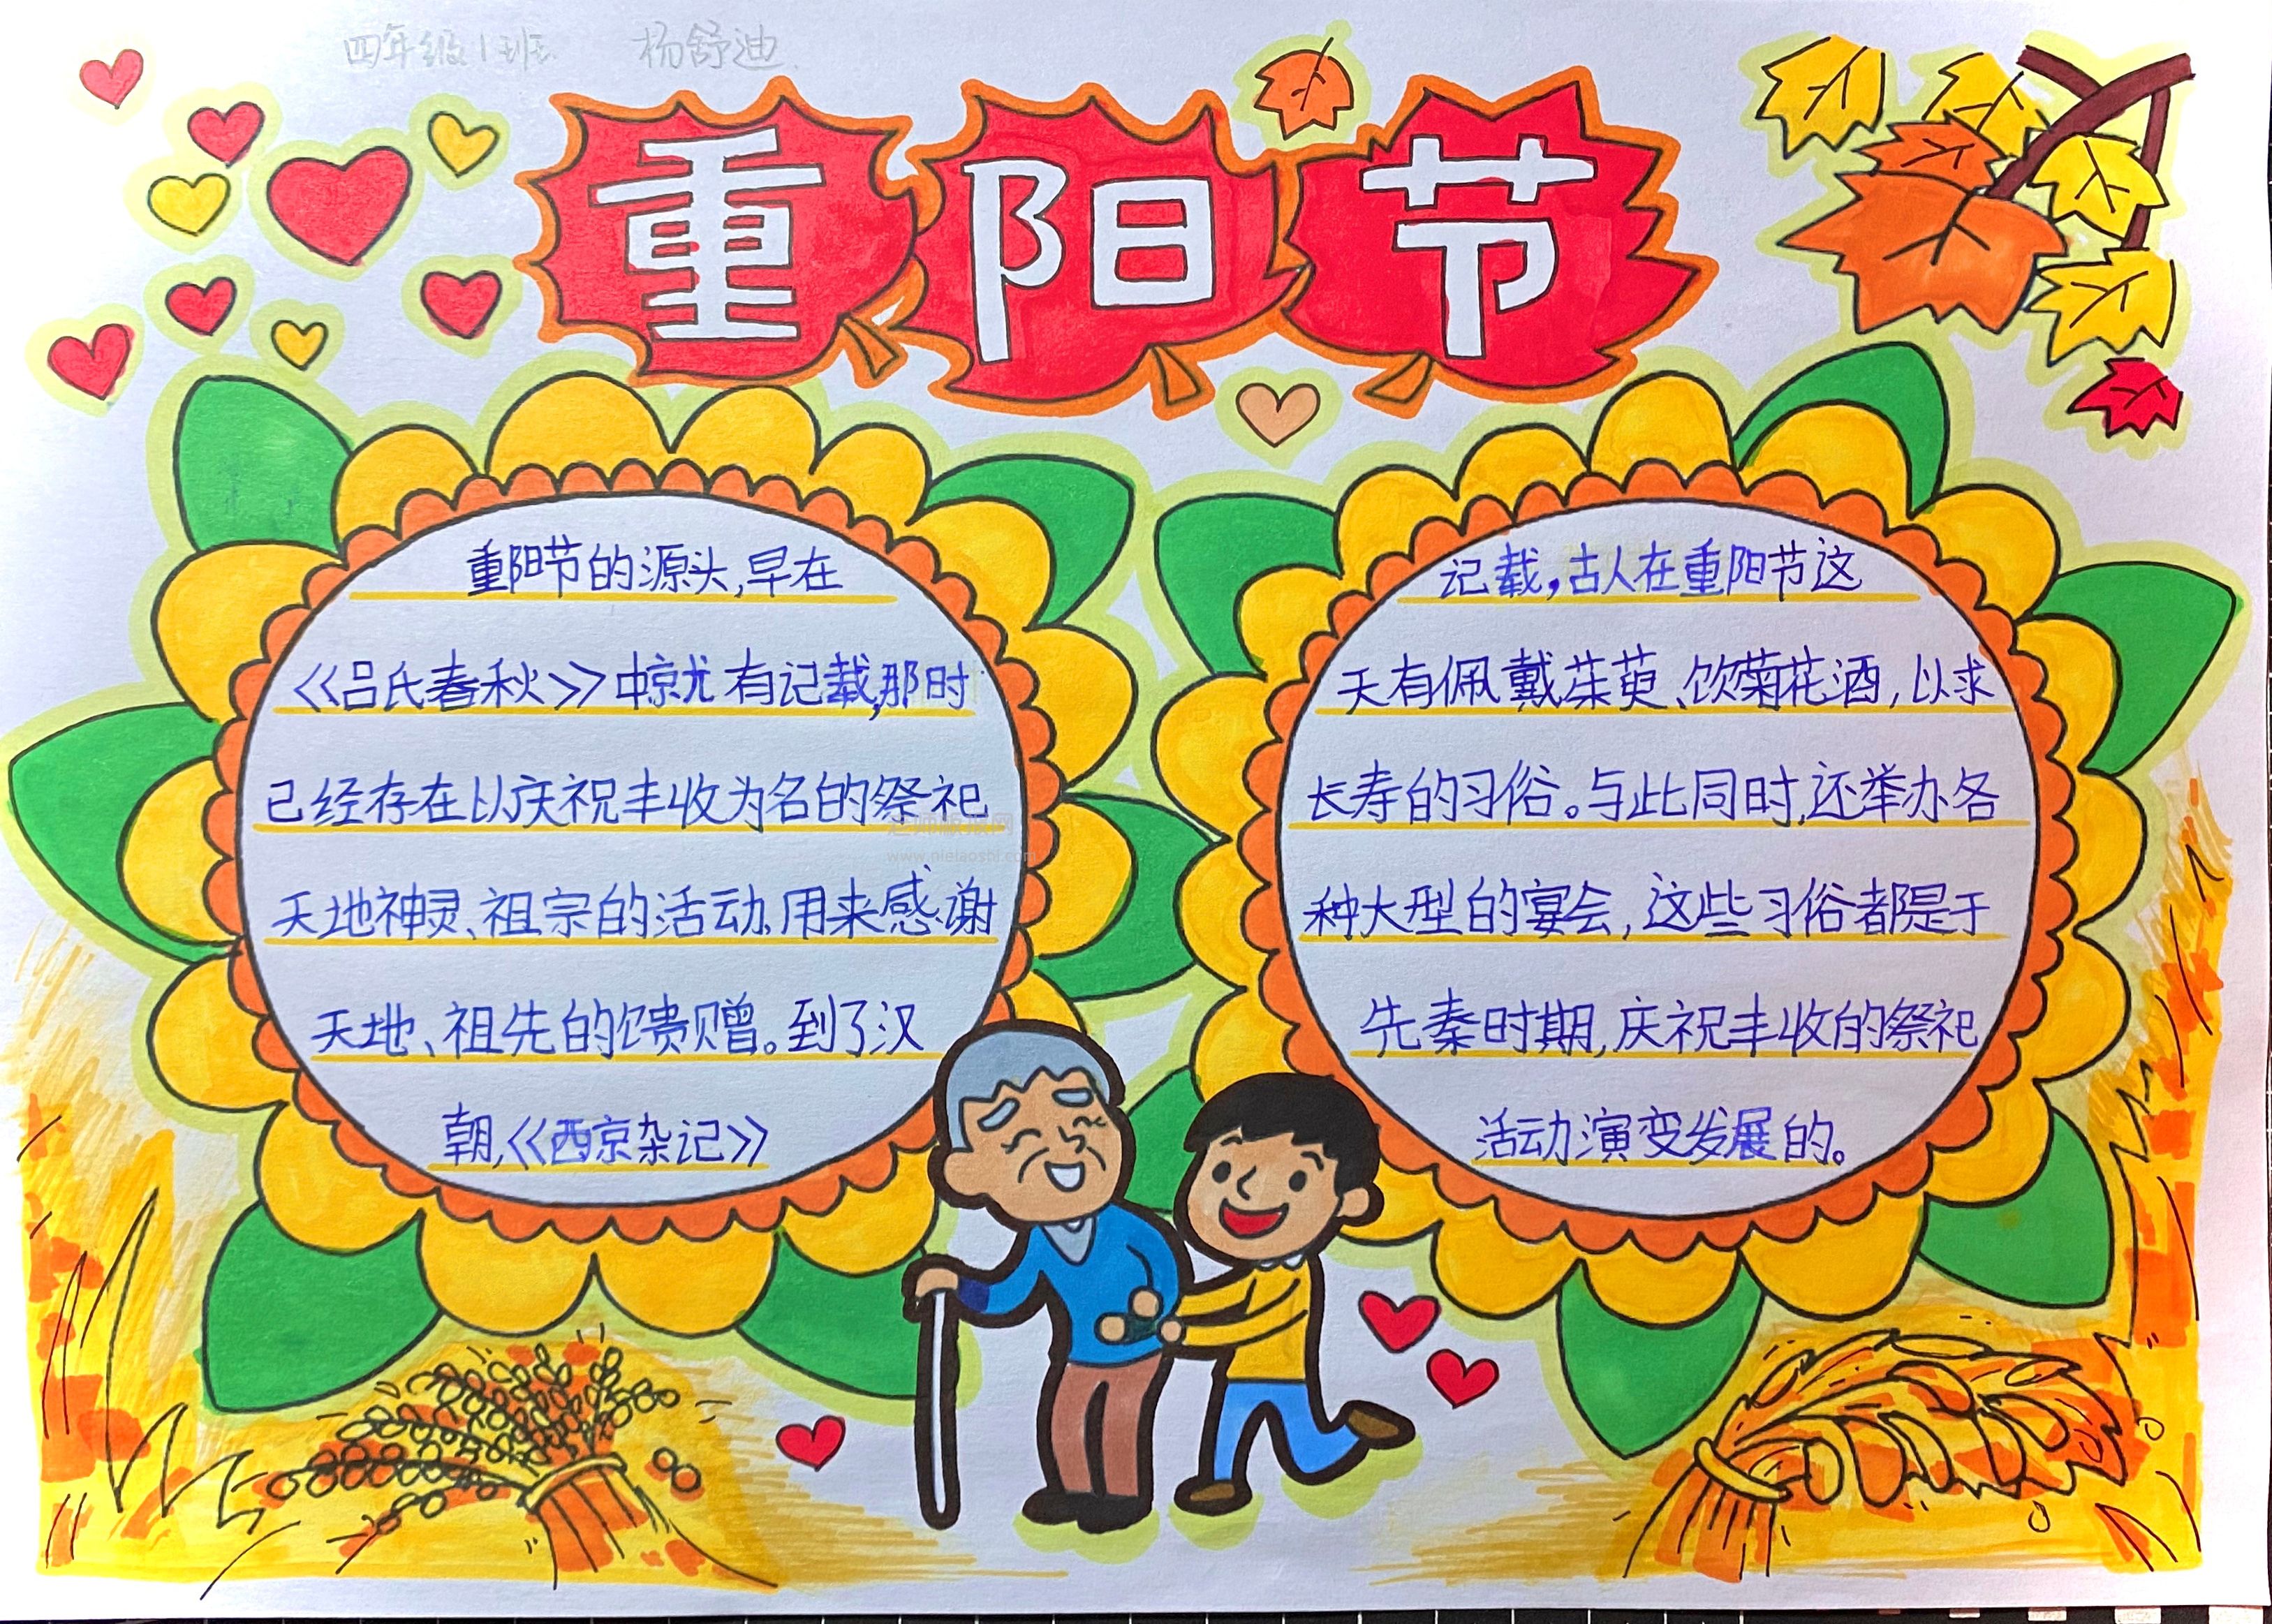 四年级1班 杨舒迪
重阳节
重阳节的源头,早在
《吕氏春秋》中就有记载,那时
已经存在以庆祝丰收为名的祭祀
天地神灵、祖宗的活动,用来感谢
天地、祖先的馈赠。到了汉
朝,《西京杂记》
记载,古人在重阳节这
天有佩戴茱萸、饮菊花酒,以求
长寿的习俗。与此同时,还举办各
种大型的宴会,这些习俗都是于
先秦时期,庆祝丰收的祭祀
活动演变发展的。